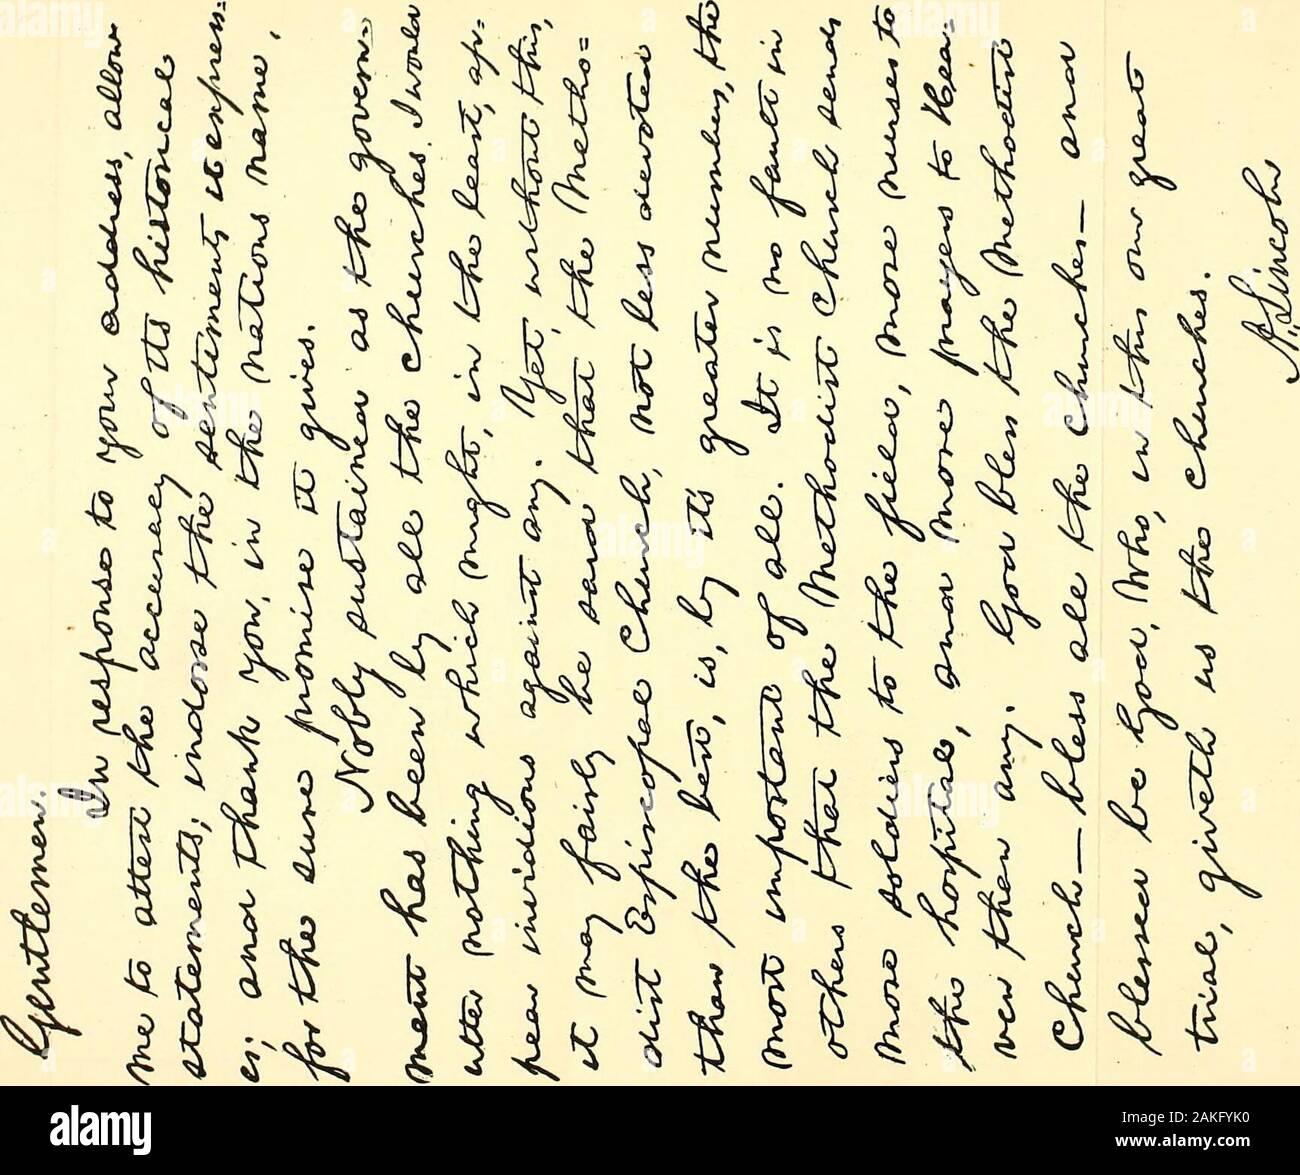 Gentlemen.
In response to your address, allow
me to attest the accuracy of its historical
statements; indorse the sentiments it express=
es; and thank you, in the nation's name,
for the sure promise it gives.
Nobly sustained as the govern=
ment has been by all the churches, I would
utter nothing which might, in the least, ap=
pear invidious against any. Yet, without this,
it may fairly be said that the Metho=
dist Episcopal Church, not less devoted
than the best, is, by it's greater numbers, the
most important of all. It is no fault in
others that the Methodist Church sends
more soldiers to the field, more nurses to
the hospital, and more prayers to Hea=
ven than any. God bless the Methodist
Church— bless all the churches— and
blessed be God, Who, in this our great
trial, giveth us the churches.
A. Lincoln
alamy
Image ID: 2AKFYK0
www.alamy.com